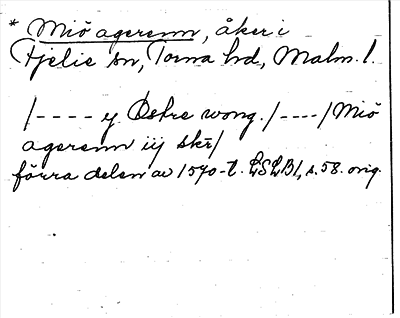 * Miö agerenn, åker i
Fjelie sn, Torna hd, Malm. l.
/---- y Östre wong. /----/ Miö
agerenn iij skr̄/
förra delen av 1570-t. LSLB1, s. 58. orig.